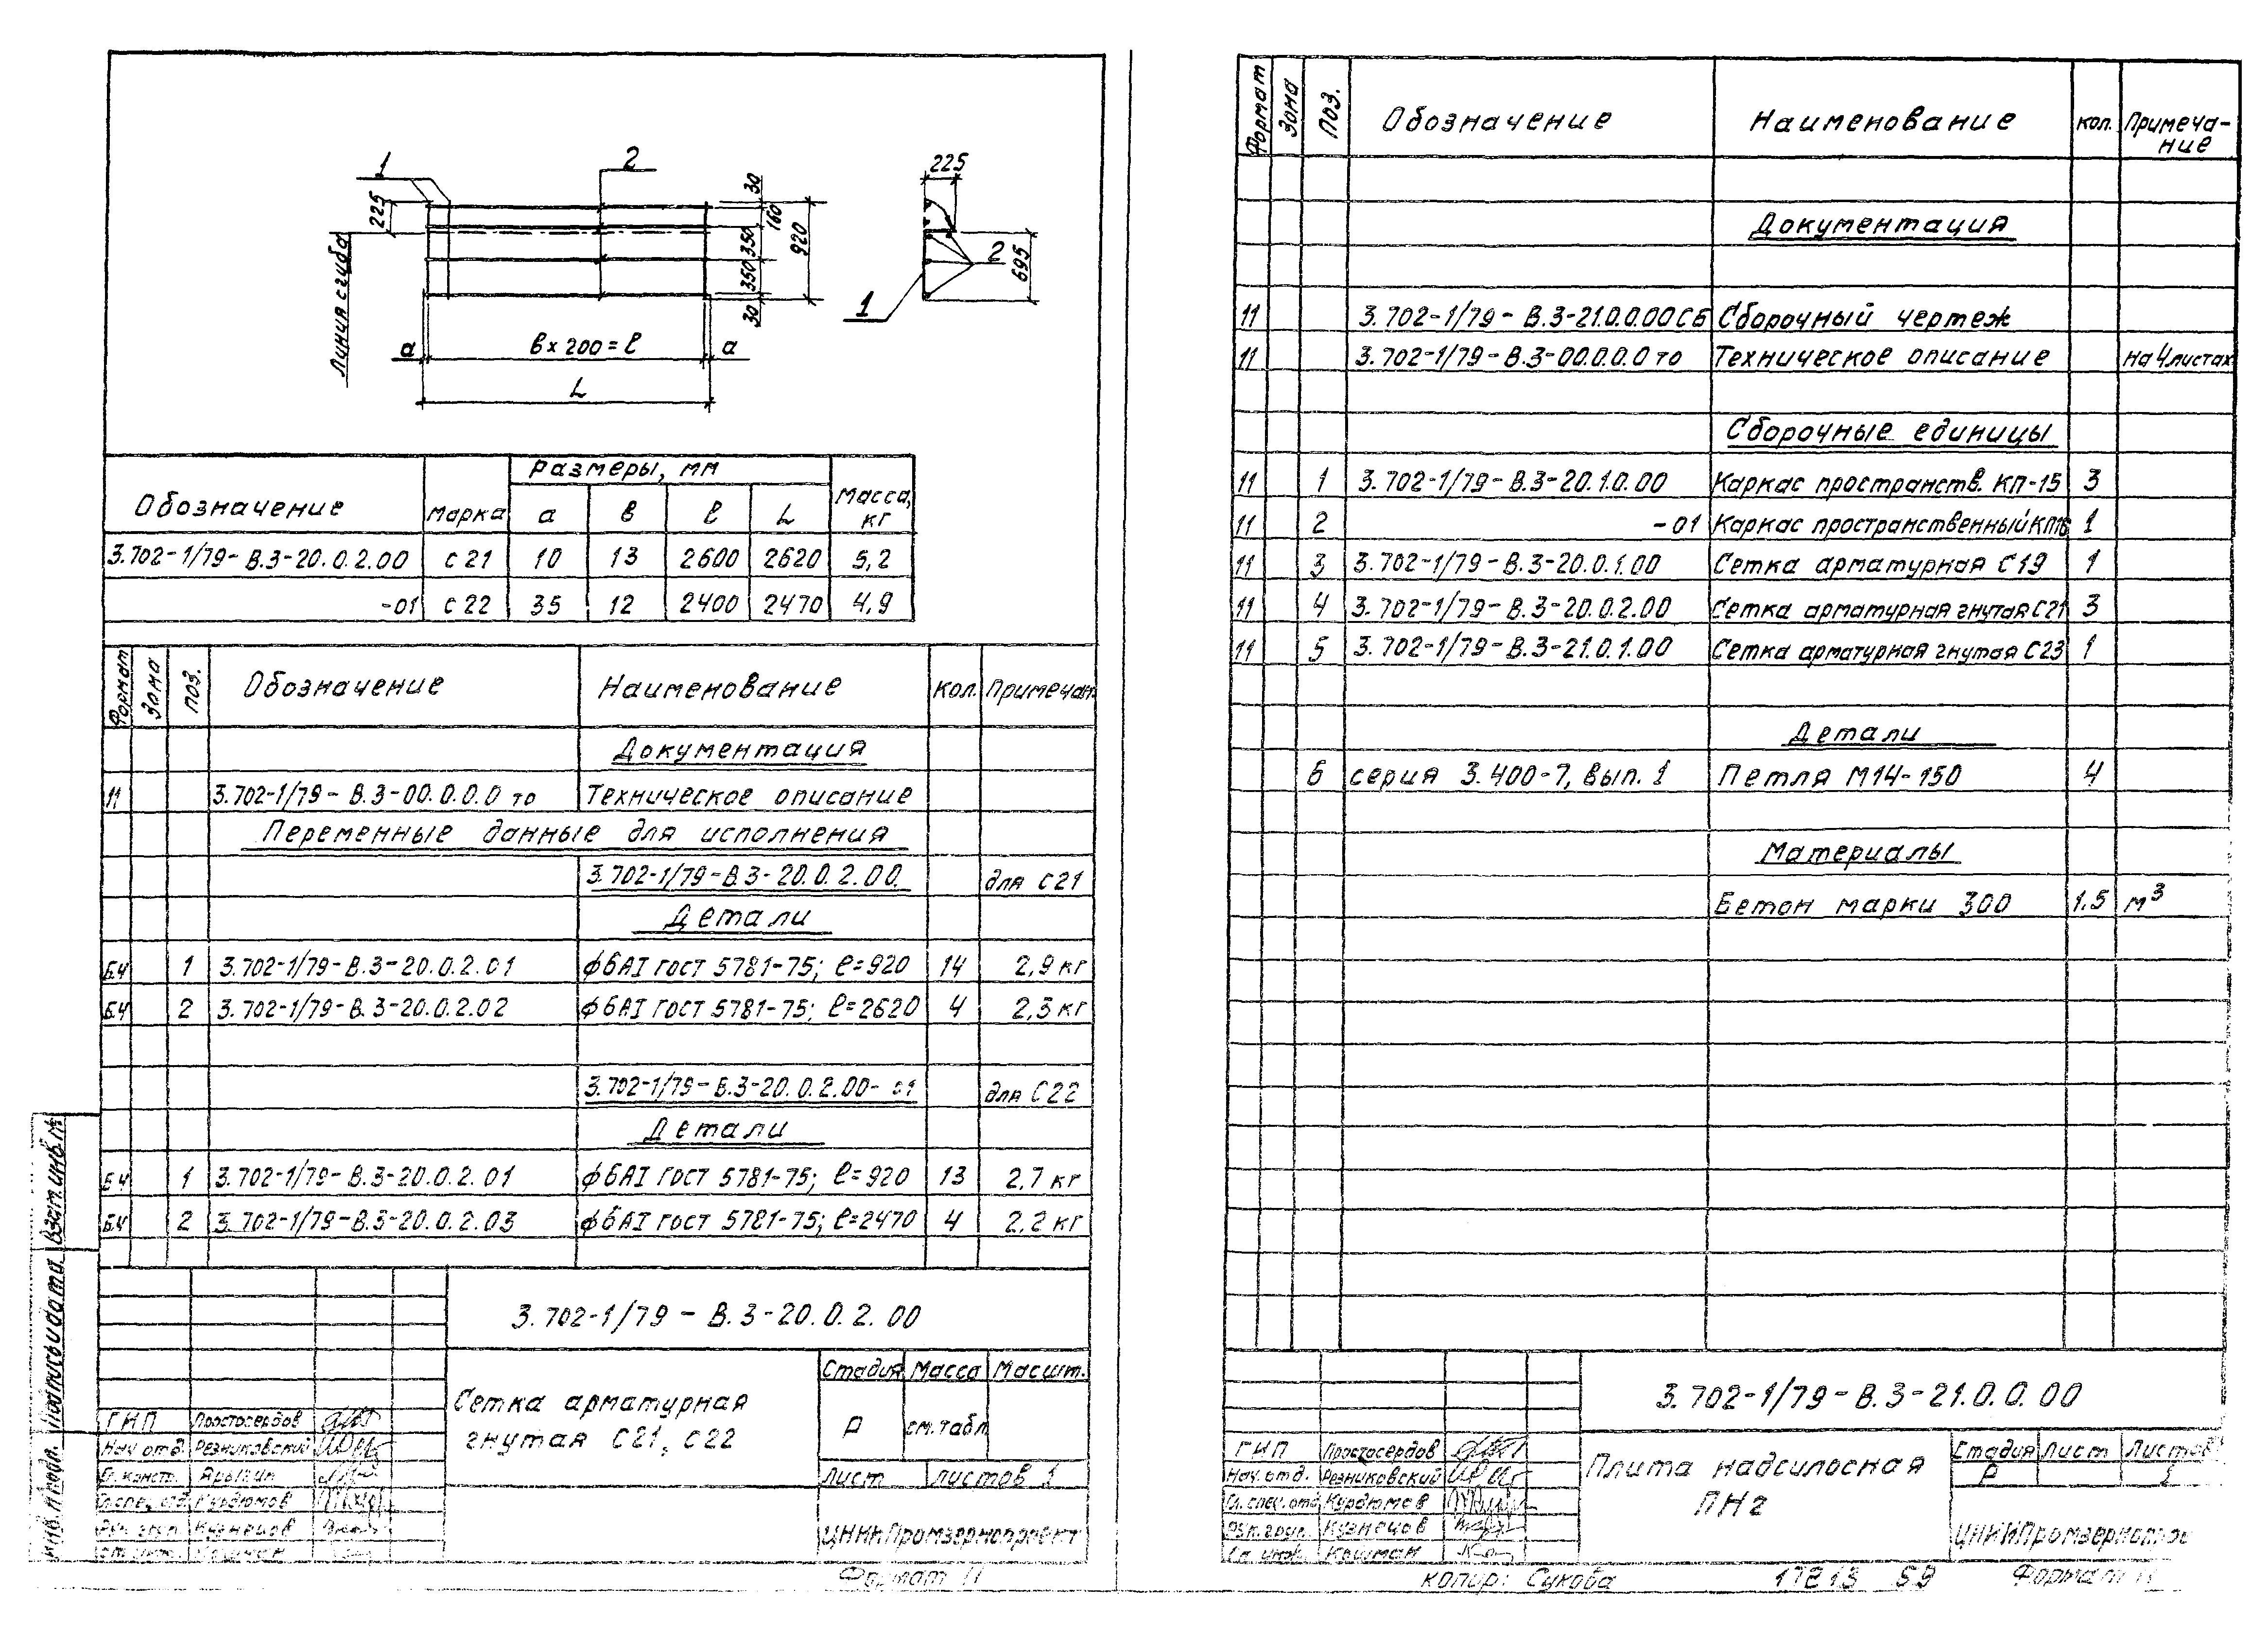 1
2
225
30
160
350
350
30
920
Линия сгиба
а
в х 200 = ℓ
а
L
225
2
695
1
Обозначение
Марка
Размеры, мм
Масса, кг
а
в
ℓ
L
3.702-1/79-В.3-20.0.2.00 С21 10 13 2600 2620 5,2
-01 С22 35 12 2400 2470 4,9
Формат Зона Поз. Обозначение Наименование Кол. Примечан.
Документация
11 3.702-1/79-В.3-00.0.0.0 то Техническое описание
Переменные данные для исполнения
3.702-1/79-В.3-20.0.2.00. для С21
Детали
Б.Ч 1 3.702-1/79-В.3-20.0.2.01 ф6АI ГОСТ 5781-75; ℓ=920 14 2,9 кг
Б.Ч 2 3.702-1/79-В.3-20.0.2.02 ф6АI ГОСТ 5781-75; ℓ=2620 4 2,3 кг
3.702-1/79-В.3-20.0.2.00-01 для С22
Детали
Б.Ч 1 3.702-1/79-В.3-20.0.2.01 ф6АI ГОСТ 5781-75; ℓ=920 13 2,7 кг
Б.Ч 2 3.702-1/79-В.3-20.0.2.03 ф6АI ГОСТ 5781-75; ℓ=2470 4 2,2 кг
3.702-1/79-В.3-20.0.2.00
Сетка арматурная
гнутая С21, С22
Стадия Масса Масшт.
Р см.табл
Лист Листов 1
ЦНИИПромзернопроект
ГИП Простосердов
Нач отд. Резниковский
Гл. конст. Ярыгин
Гл.спец. отд. Курдюмов
Рук. груп. Кузнецов
Ст. инж. Койшман
Инв. № подл. Подпись и дата Взam. инв. №
Формат 11
Формат Зона Поз. Обозначение Наименование Кол. Примеча-
ние
Документация
11 3.702-1/79-В.3-21.0.0.00СБ Сборочный чертеж
11 3.702-1/79-В.3-00.0.0.0 то Техническое описание на 4 листах
Сборочные единицы
11 1 3.702-1/79-В.3-20.1.0.00 Каркас пространств. КП-15 3
11 2 -01 Каркас пространственный КП16 1
11 3 3.702-1/79-В.3-20.0.1.00 Сетка арматурная С19 1
11 4 3.702-1/79-В.3-20.0.2.00 Сетка арматурная гнутая С21 3
11 5 3.702-1/79-В.3-21.0.1.00 Сетка арматурная гнутая С23 1
Детали
6 серия 3.400-7, вып. 1 Петля М14-150 4
Материалы
Бетон марки 300 1.5 м³
3.702-1/79-В.3-21.0.0.00
Плита надсилосная
ПН2
Стадия Лист Листов
Р 1
ГИП Простосердов
Нач.отд. Резниковский
Гл.спец.отд Курдюмов
Рук.груп. Кузнецов
Ст. инж. Койшман
копир: Сукова 17213 59 Формат 11